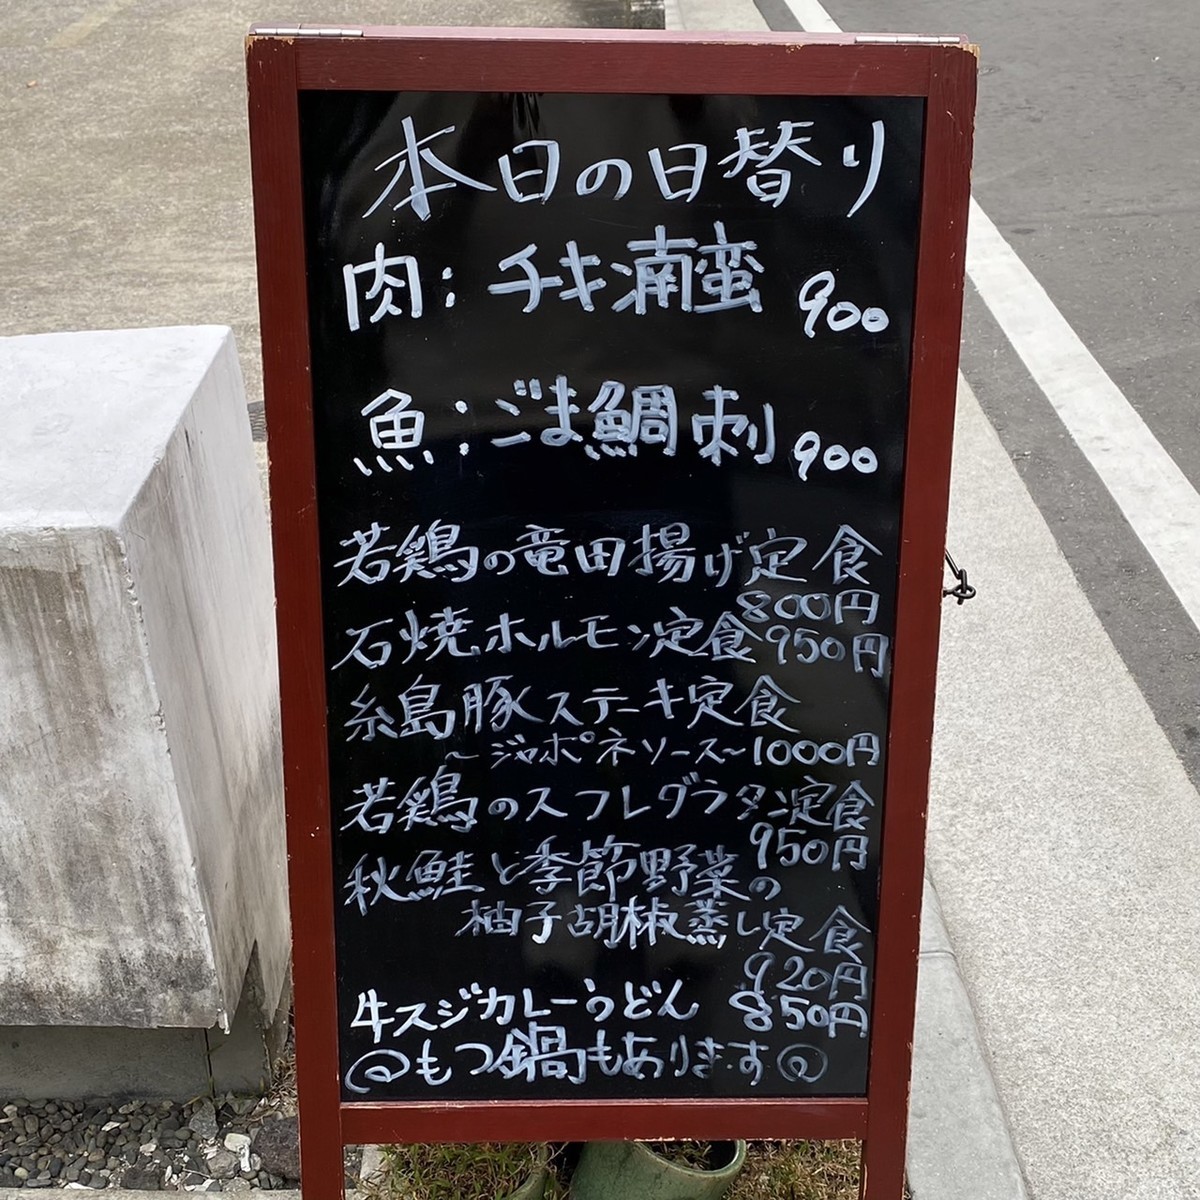 本日の日替り
肉:チキン南蛮 900
魚:ごま鯛刺 900
若鶏の竜田揚げ定食
800円
石焼ホルモン定食 950円
糸島豚ステーキ定食
～ジャポネソース～1000円
若鶏のスフレグラタン定食
950円
秋鮭と季節野菜の
柚子胡椒蒸し定食
920円
牛スジカレーうどん 850円
もつ鍋もあります